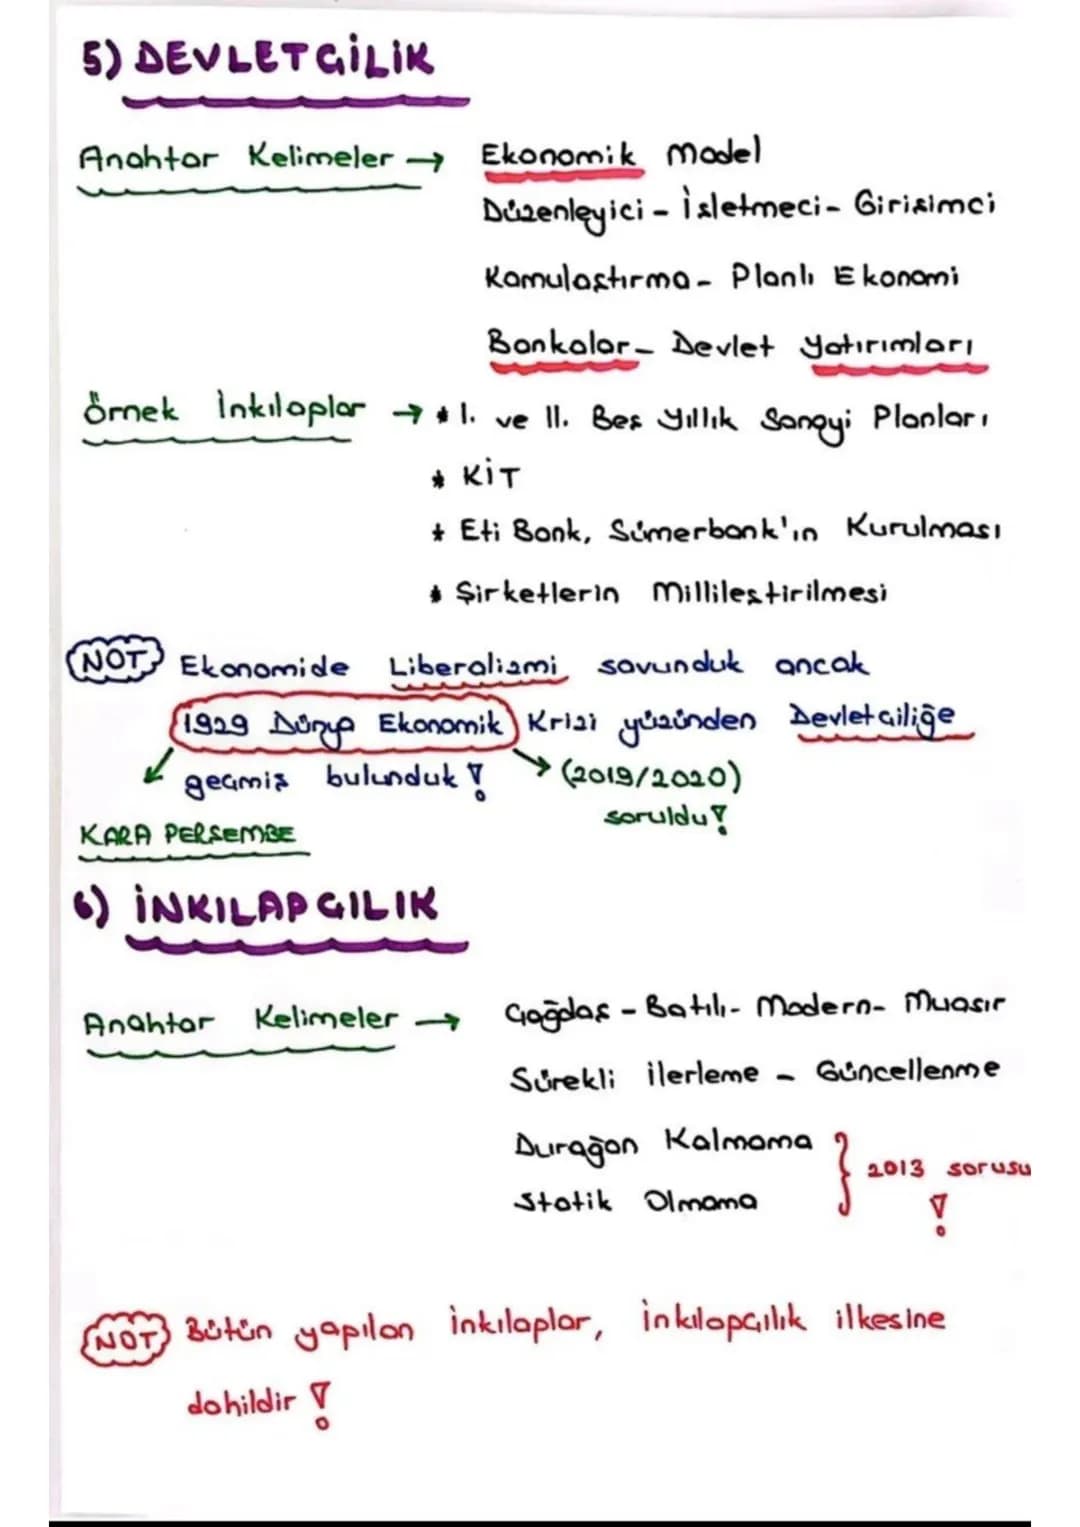 5) DEVLETÇİLİK
Anahtar Kelimeler → Ekonomik Model
Düzenleyici - İşletmeci - Girişimci
Kamulaştırma - Planlı Ekonomi
Bankalar - Devlet Yatırımları
Örnek İnkılaplar → * I. ve II. Beş Yıllık Sanayi Planları
* KİT
* Eti Bank, Sümerbank'ın Kurulması
* Şirketlerin Millileştirilmesi
NOT Ekonomide Liberalizmi savunduk ancak
1929 Dünya Ekonomik Krizi yüzünden Devletçiliğe
geçmiş bulunduk!
→ (2019/2020)
soruldu!
KARA PERŞEMBE
6) İNKILAPÇILIK
Anahtar Kelimeler → Çağdaş - Batılı - Modern - Muasır
Sürekli ilerleme - Güncellenme
Durağan Kalmama
Statik Olmama
} 2013 sorusu
!
NOT Bütün yapılan inkılaplar, inkılapçılık ilkesine
dahildir!